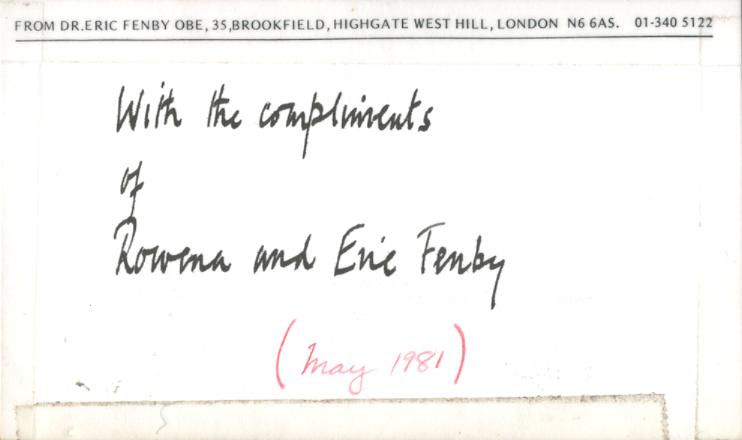 FROM DR.ERIC FENBY OBE, 35,BROOKFIELD, HIGHGATE WEST HILL, LONDON N6 6AS. 01-340 5122
With the compliments
of
Rowena and Eric Fenby
(May 1981)